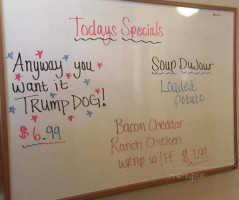 Todays Specials
Anyway you
want it
TRUMP DOG!
$6.99
Soup DuJour
Loaded
Potato
Bacon Cheddar
Ranch Chicken
wrap w/ FF $7.99